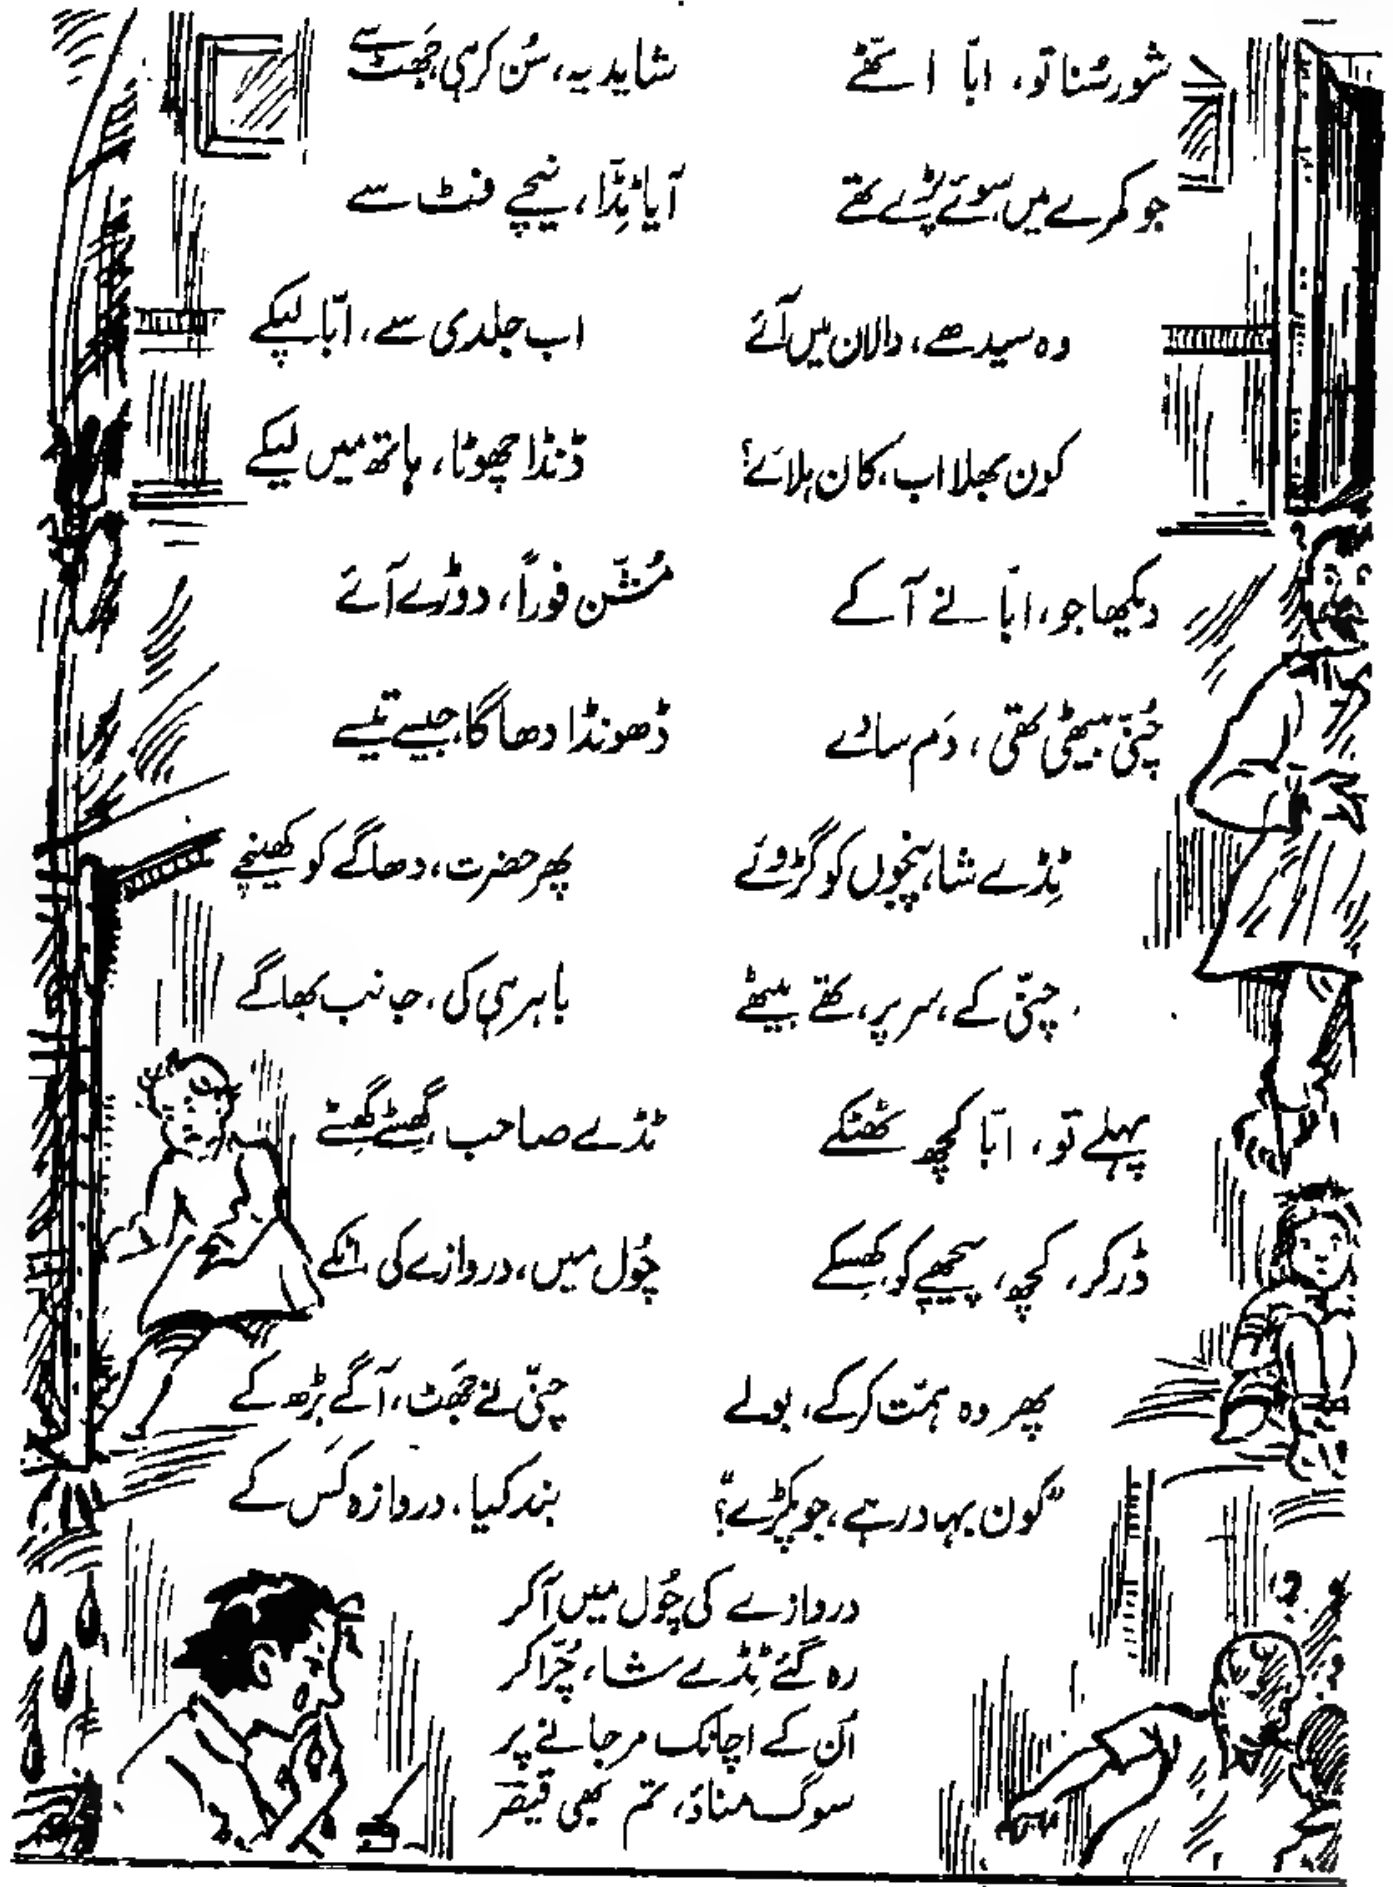 شور سُنا تو، ابّا اُٹھے
جو کمرے میں سوئے پڑے تھے
وہ سیدھے، دالان میں آئے
کون بھلا اب، کان ہلائے؟
دیکھا جو، ابّا نے آ کے
چُنّی بیٹھی تھی، دَم سادھے
ٹِڈّے شا، پنجوں کو گڑوئے
چنّی کے، سر پر، تھے بیٹھے
پہلے تو، ابّا کچھ ٹھٹکے
ڈر کر، کچھ، پیچھے کو، کھِسکے
پھر وہ ہمّت کر کے، بولے
"کون بہادر ہے، جو پکڑے؟"
شاید یہ، سُن کر ہی، جَھٹ سے
آیا ٹِڈّا، نیچے فٹ سے
اب جلدی سے، ابّا لپکے
ڈنڈا چھوٹا، ہاتھ میں لیکے
مُنّن فوراً، دوڑے آئے
ڈھونڈا دھاگا، جیسے تیسے
پھر حضرت، دھاگے کو کھینچے
باہر ہی کی، جانب بھاگے
ٹڈّے صاحب گھِسٹے گھِسٹے
چُول میں، دروازے کی اٹکے
چنّی نے جَھٹ، آگے بڑھ کے
بند کیا، دروازہ کَس کے
دروازے کی چُول میں آ کر
رہ گئے ٹِڈّے شا، چُرّا کر
اُن کے اچانک مر جانے پر
سوگ مناؤ، تم بھی قیصر